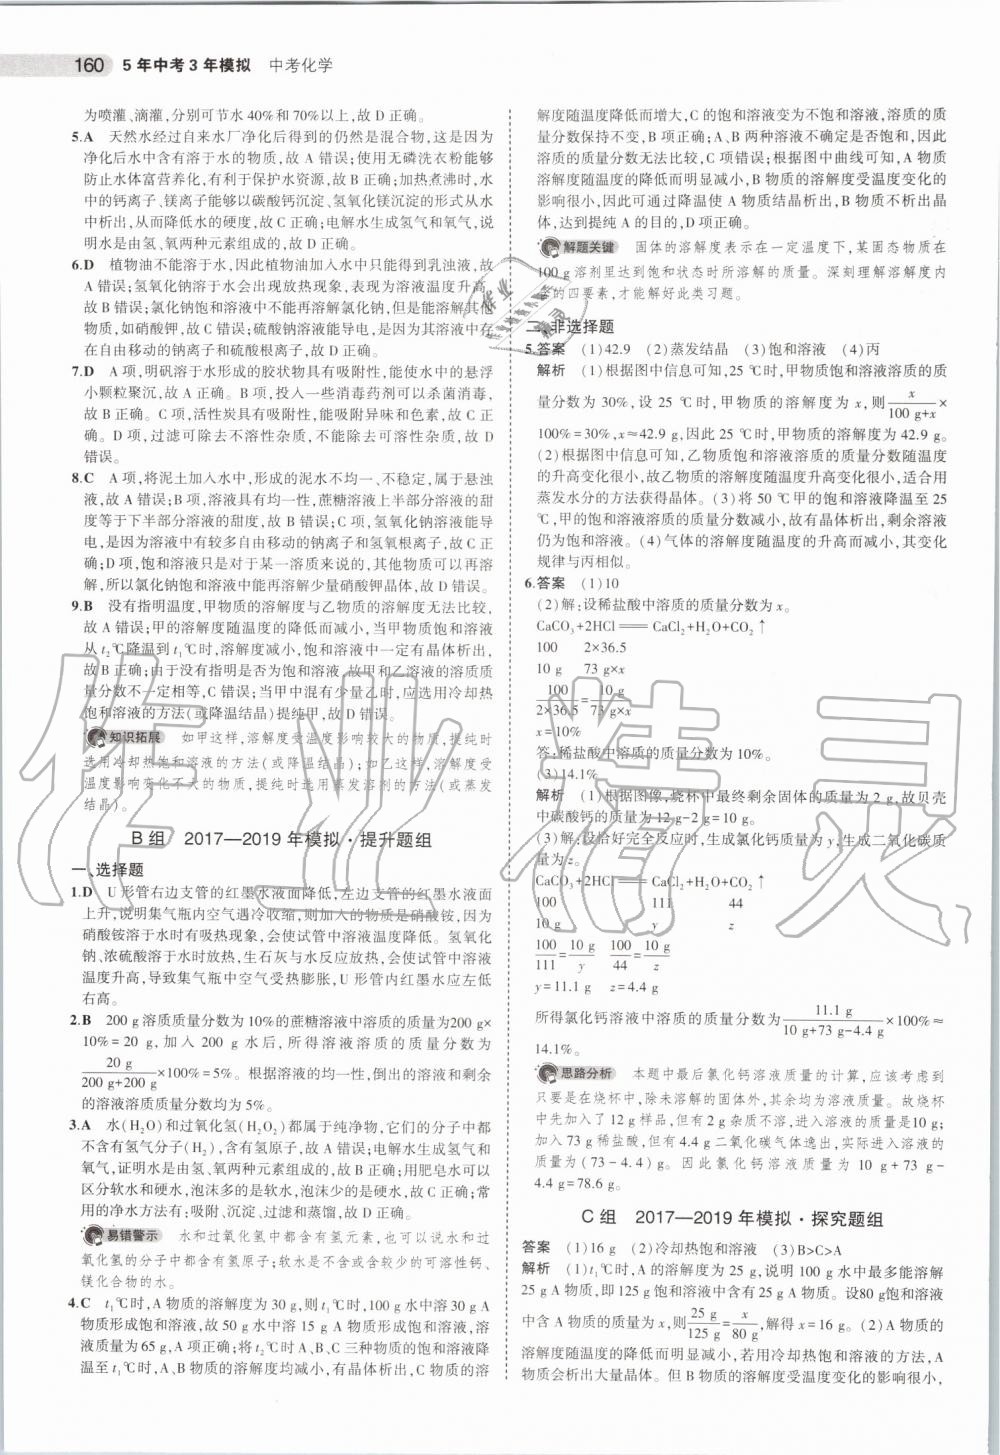 160 5年中考3年模拟 中考化学
为喷灌、滴灌,分别可节水40%和70%以上,故D正确。
5.A 天然水经过自来水厂净化后得到的仍然是混合物,这是因为
净化后水中含有溶于水的物质,故A错误;使用无磷洗衣粉能够
防止水体富营养化,有利于保护水资源,故B正确;加热煮沸时,水
中的钙离子、镁离子能够以碳酸钙沉淀、氢氧化镁沉淀的形式从水
中析出,从而降低水的硬度,故C正确;电解水生成氢气和氧气,说
明水是由氢、氧两种元素组成的,故D正确。
6.D 植物油不能溶于水,因此植物油加入水中只能得到乳浊液,故
A错误;氢氧化钠溶于水会出现放热现象,表现为溶液温度升高,
故B错误;氯化钠饱和溶液中不能再溶解氯化钠,但是能溶解其他
物质,如硝酸钾,故C错误;硫酸钠溶液能导电,是因为溶液中存
在自由移动的钠离子和硫酸根离子,故D正确。
7.D A项,明矾溶于水形成的胶状物具有吸附性,能使水中的悬浮
小颗粒聚沉,故A正确。B项,投入一些消毒药剂可以杀菌消毒,
故B正确。C项,活性炭具有吸附性,能吸附异味和色素,故C正
确。D项,过滤可除去不溶性杂质,不能除去可溶性杂质,故D
错误。
8.C A项,将泥土加入水中,形成的泥水不均一、不稳定,属于悬浊
液,故A错误;B项,溶液具有均一性,蔗糖溶液上半部分溶液的甜
度等于下半部分溶液的甜度,故B错误;C项,氢氧化钠溶液能导
电,是因为溶液中有较多自由移动的钠离子和氢氧根离子,故C正
确;D项,饱和溶液只是对于某一溶质来说的,其他物质可以再溶
解,所以氯化钠饱和溶液中能再溶解少量硝酸钾晶体,故D错误。
9.B 没有指明温度,甲物质的溶解度与乙物质的溶解度无法比较,
故A错误;甲的溶解度随温度的降低而减小,当甲物质饱和溶液
从t₂℃降温到t₁℃时,溶解度减小,饱和溶液中一定有晶体析出,
故B正确;由于没有指明是否为饱和溶液,故甲和乙溶液的溶质质
量分数不一定相等,C错误;当甲中混有少量乙时,应选用冷却热
饱和溶液的方法(或降温结晶)提纯甲,故D错误。
知识拓展 如甲这样,溶解度受温度影响较大的物质,提纯时
选用冷却热饱和溶液的方法(或降温结晶);如乙这样,溶解度受
温度影响变化不大的物质,提纯时选用蒸发溶剂的方法(或蒸发
结晶)。
B组 2017—2019年模拟·提升题组
一、选择题
1.D U形管右边支管的红墨水液面降低,左边支管的红墨水液面
上升,说明集气瓶内空气遇冷收缩,则加入的物质是硝酸铵,因为
硝酸铵溶于水时有吸热现象,会使试管中溶液温度降低。氢氧化
钠、浓硫酸溶于水时放热,生石灰与水反应放热,会使试管中溶液
温度升高,导致集气瓶中空气受热膨胀,U形管内红墨水应左低
右高。
2.B 200 g溶质质量分数为10%的蔗糖溶液中溶质的质量为200 g×
10%=20 g,加入200 g水后,所得溶液溶质的质量分数为
20 g/(200 g+200 g)×100%=5%。根据溶液的均一性,倒出的溶液和剩余
的溶液溶质质量分数均为5%。
3.A 水(H₂O)和过氧化氢(H₂O₂)都属于纯净物,它们的分子中都
不含有氢气分子(H₂),含有氢原子,故A错误;电解水生成氢气和
氧气,证明水是由氢、氧两种元素组成的,故B正确;用肥皂水可以
区分软水和硬水,泡沫多的是软水,泡沫少的是硬水,故C正确;常
用的净水方法有:吸附、沉淀、过滤和蒸馏,故D正确。
易错警示 水和过氧化氢中都含有氢元素,也可以说水分子和过
氧化氢的分子中都含有氢原子;软水是不含或含较少的可溶性钙、
镁化合物的水。
4.C t₁℃时,A物质的溶解度为30 g,则t₁℃时,100 g水中溶30 g A
物质形成饱和溶液,故50 g水中溶15 g A物质形成饱和溶液,溶
液质量为65 g,A项正确;将t₂℃时A、B、C三种物质的饱和溶液降
温至t₁℃时,A、B物质的溶解度均减小,有晶体析出,C物质的溶
解度随温度降低而增大,C的饱和溶液变为不饱和溶液,溶质的质
量分数保持不变,B项正确;A、B两种溶液不确定是否饱和,因此
溶质的质量分数无法比较,C项错误;根据图中曲线可知,A物质
溶解度随温度的降低而明显减小,B物质的溶解度受温度变化的
影响很小,因此可通过降温使A物质结晶析出,B物质不析出晶
体,达到提纯A的目的,D项正确。
解题关键 固体的溶解度表示在一定温度下,某固态物质在
100 g溶剂里达到饱和状态时所溶解的质量。深刻理解溶解度内
含的四要素,才能解好此类习题。
二、非选择题
5.答案 (1)42.9 (2)蒸发结晶 (3)饱和溶液 (4)丙
解析 (1)根据图中信息可知,25 ℃时,甲物质饱和溶液溶质的质
量分数为30%,设25 ℃时,甲物质的溶解度为x,则x/(100 g+x)×
100%=30%,x≈42.9 g,因此25 ℃时,甲物质的溶解度为42.9 g。
(2)根据图中信息可知,乙物质饱和溶液溶质的质量分数随温度
的升高变化很小,故乙物质的溶解度随温度升高变化很小,适合用
蒸发水分的方法获得晶体。(3)将50 ℃甲的饱和溶液降温至25
℃,甲的饱和溶液溶质的质量分数减小,故有晶体析出,剩余溶液
仍为饱和溶液。(4)气体的溶解度随温度的升高而减小,其变化
规律与丙相似。
6.答案 (1)10
(2)解:设稀盐酸中溶质的质量分数为x。
CaCO₃+2HCl══CaCl₂+H₂O+CO₂↑
100 2×36.5
10 g 73 g×x
100/(2×36.5)=10 g/(73 g×x)
x=10%
答:稀盐酸中溶质的质量分数为10%。
(3)14.1%
解析 (1)根据图像,烧杯中最终剩余固体的质量为2 g,故贝壳
中碳酸钙的质量为12 g-2 g=10 g。
(3)解:设恰好完全反应时,生成氯化钙质量为y,生成二氧化碳质
量为z。
CaCO₃+2HCl══CaCl₂+H₂O+CO₂↑
100 111 44
10 g y z
100/111=10 g/y 100/44=10 g/z
y=11.1 g z=4.4 g
所得氯化钙溶液中溶质的质量分数为11.1 g/(10 g+73 g-4.4 g)×100%≈
14.1%。
思路分析 本题中最后氯化钙溶液质量的计算,应该考虑到
只要是在烧杯中,除未溶解的固体外,其余均为溶液质量。故烧杯
中先加入了12 g样品,但有2 g杂质不溶,进入溶液的质量是10 g;
加入73 g稀盐酸,但有4.4 g二氧化碳气体逸出,实际进入溶液的
质量为(73-4.4)g。因此氯化钙溶液质量为10 g+73 g-
4.4 g=78.6 g。
C组 2017—2019年模拟·探究题组
答案 (1)16 g (2)冷却热饱和溶液 (3)B>C>A
解析 (1)t₁℃时,A的溶解度为25 g,说明100 g水中最多能溶解
25 g A物质,即125 g饱和溶液中含有25 g A物质。设80 g饱和溶液
中含A物质的质量为x,则25 g/125 g=x/80 g,解得x=16 g。(2)A物质的
溶解度随温度的降低而明显减小,若用冷却热饱和溶液的方法,A
物质会析出大量晶体。但B物质的溶解度受温度变化的影响很小,
作业精灵